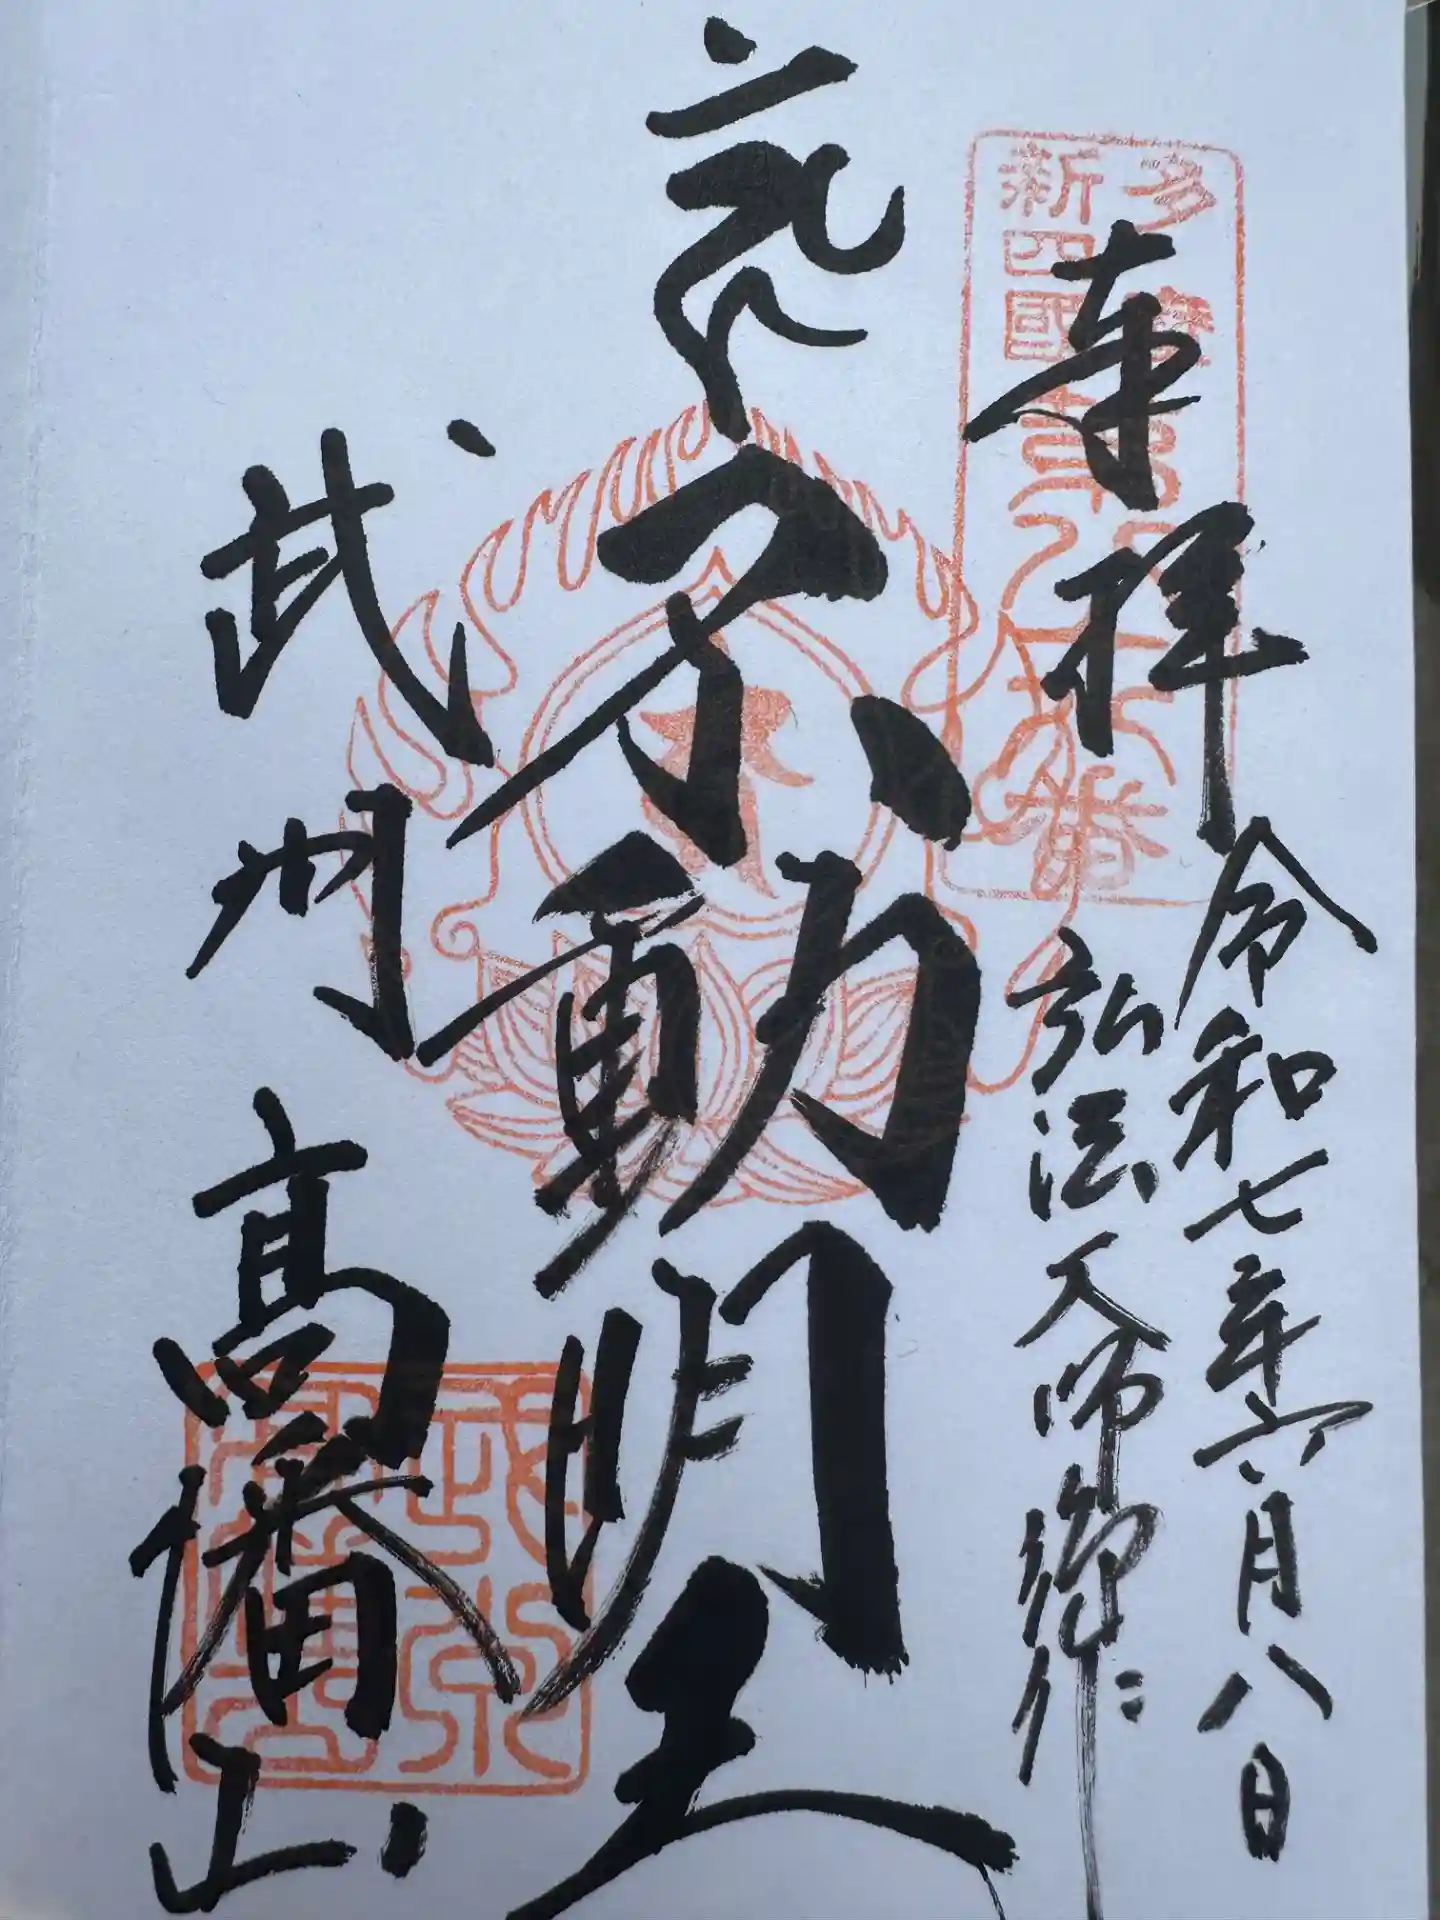 奉拝
令和七年六月八日
弘法大師御作
不動明王
武州
高幡山
多摩
新四國
第八十八番